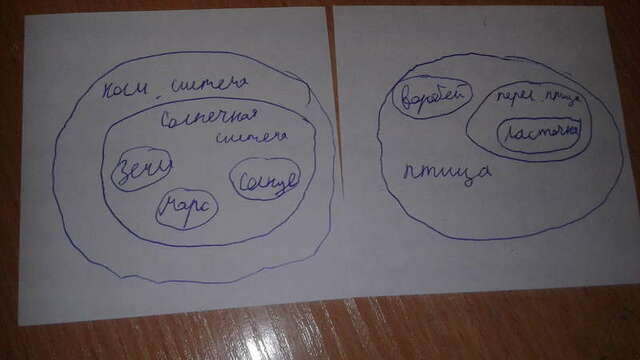 косм. система
солнечная
система
Земля
Марс
Солнце
воробей
перел. птица
ласточка
птица